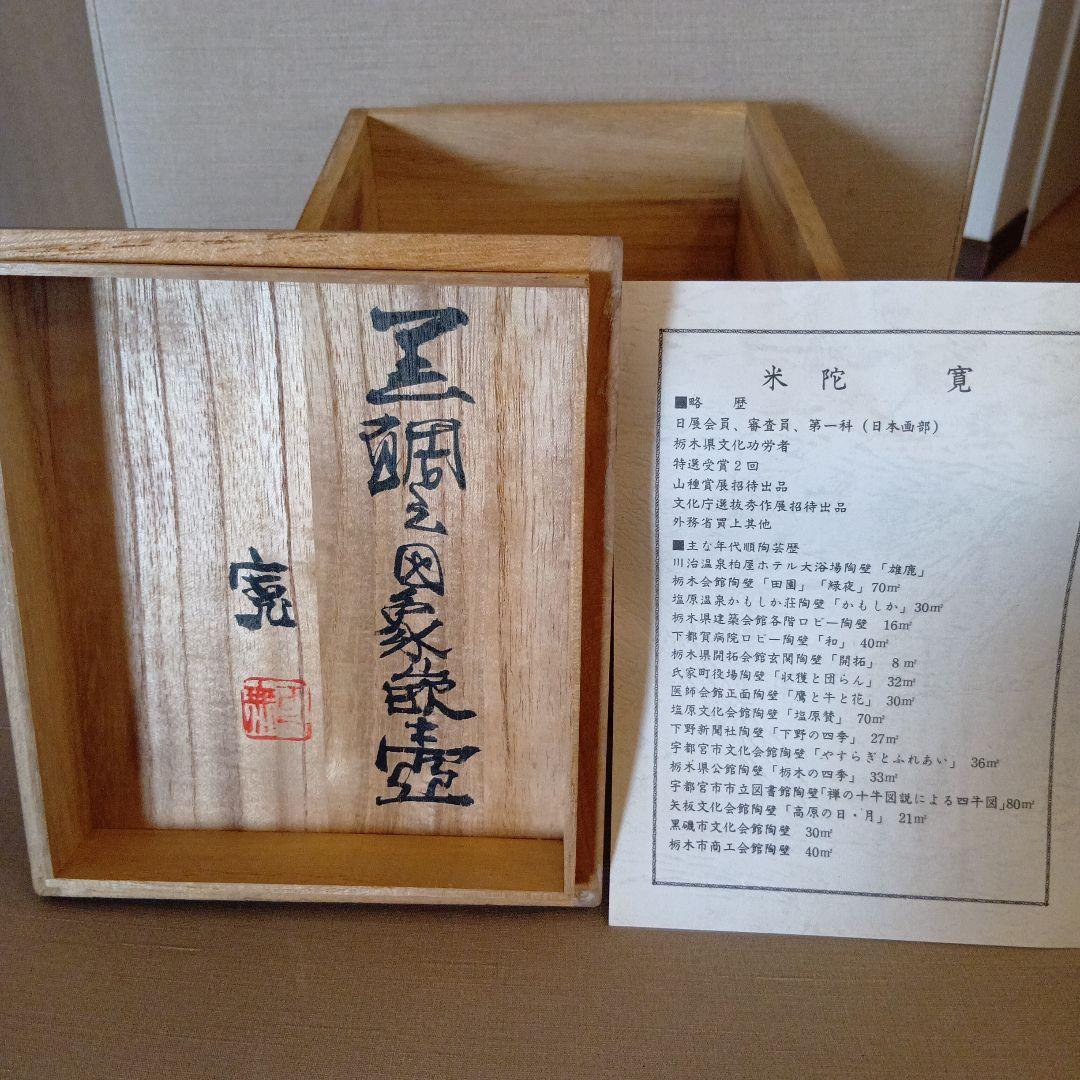 黒鯛之図象嵌壷
寛
米陀 寛
■略 歴
日展会員、審査員、第一科（日本画部）
栃木県文化功労者
特選受賞２回
山種賞展招待出品
文化庁選抜秀作展招待出品
外務省買上其他
■主な年代順陶芸歴
川治温泉柏屋ホテル大浴場陶壁「雄鹿」
栃木会館陶壁「田園」「緑夜」70㎡
塩原温泉かもしか荘陶壁「かもしか」30㎡
栃木県建築会館各階ロビー陶壁 16㎡
下都賀病院ロビー陶壁「和」 40㎡
栃木県開拓会館玄関陶壁「開拓」 8㎡
氏家町役場陶壁「収獲と団らん」 32㎡
医師会館正面陶壁「鷹と牛と花」 30㎡
塩原文化会館陶壁「塩原賛」 70㎡
下野新聞社陶壁「下野の四季」 27㎡
宇都宮市文化会館陶壁「やすらぎとふれあい」 36㎡
栃木県公館陶壁「栃木の四季」 33㎡
宇都宮市市立図書館陶壁「禅の十牛図説による四牛図」80㎡
矢板文化会館陶壁「高原の日・月」 21㎡
黒磯市文化会館陶壁 30㎡
栃木市商工会館陶壁 40㎡